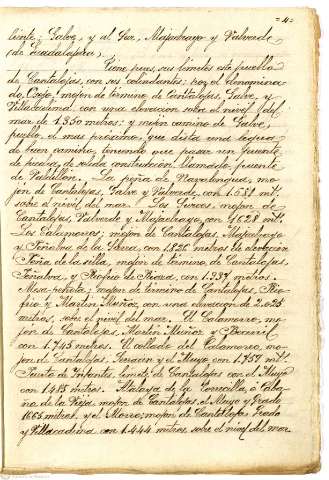 -4-
liente; Galve, y al Sur, Majaelrayo y Valverde
(de Guadalajara)
Tiene pues, sus límites este pueblo
de Cantalojas, con sus colindantes; por el denomina-
do, Cojo, mojon de término de Cantalojas, Galve y
Villacadima, con una elevacion sobre el nivel del
mar de 1.350 metros; y mojon camino de Galve,
pueblo el mas próximo, que dista una legua
de buen camino, teniendo que pasar un puente
de piedra de solida construccion llamado puente
de. La peña de, mo-
jon de Cantalojas, Galve y Valverde, con 1.581 mt.
sobre el nivel del mar. Las, mojon de
Cantalojas, Valverde y Majaelrayo, con 1628 mt.
Los Calamorros; mojon de Cantalojas, Majaelrayo
y Peñalva de la Sierra con 1826 metros de elevacion
Peña de la silla, mojon de término de Cantalojas,
Peñalva y Riofrio de Riaza, con 1.937 metros.
Mesa-peñota; mojon de término de Cantalojas, Rio-
frio y Martin Muñoz, con una elevacion de 2.025
metros, sobre el nivel del mar. El Calamorro, mo-
jon de Cantalojas, Martin Muñoz y Becerril
con 1.745 metros. El collado del Calamorro, mo-
jon de Cantalojas, Serracin y el Muyo con 1.757 mt.
Puerto de Infantes, limite de Cantalojas con el Muyo
con 1.415 metros. Atalaya de la Torrecilla, ó
de la Vieja, mojon de Cantalojas, el Muyo y Grado
1665 metros. y el Morro; mojon de Cantalojas Grado
y Villacadima con 1.444 metros sobre el nivel del mar.